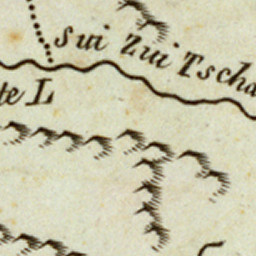 Sui Zui Tscha
te L